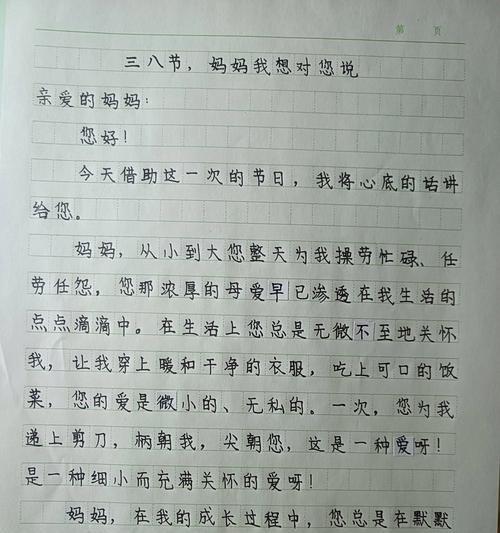 第 页
三八节，妈妈我想对您说
亲爱的妈妈：
您好！
今天借助这一次的节日，我将心底的话讲
给您。
妈妈，从小到大您整天为我操劳忙碌、任
劳任怨，您那浓厚的母爱早已渗透在我生活的
点点滴滴中。在生活上您总是无微不至地关怀
我，让我穿上暖和干净的衣服，吃上可口的饭
菜，您的爱是微小的、无私的。一次，您为我
递上剪刀，柄朝我，尖朝您，这是一种爱呀！
是一种细小而充满关怀的爱呀！
妈妈，在我的成长过程中，您总是在默默